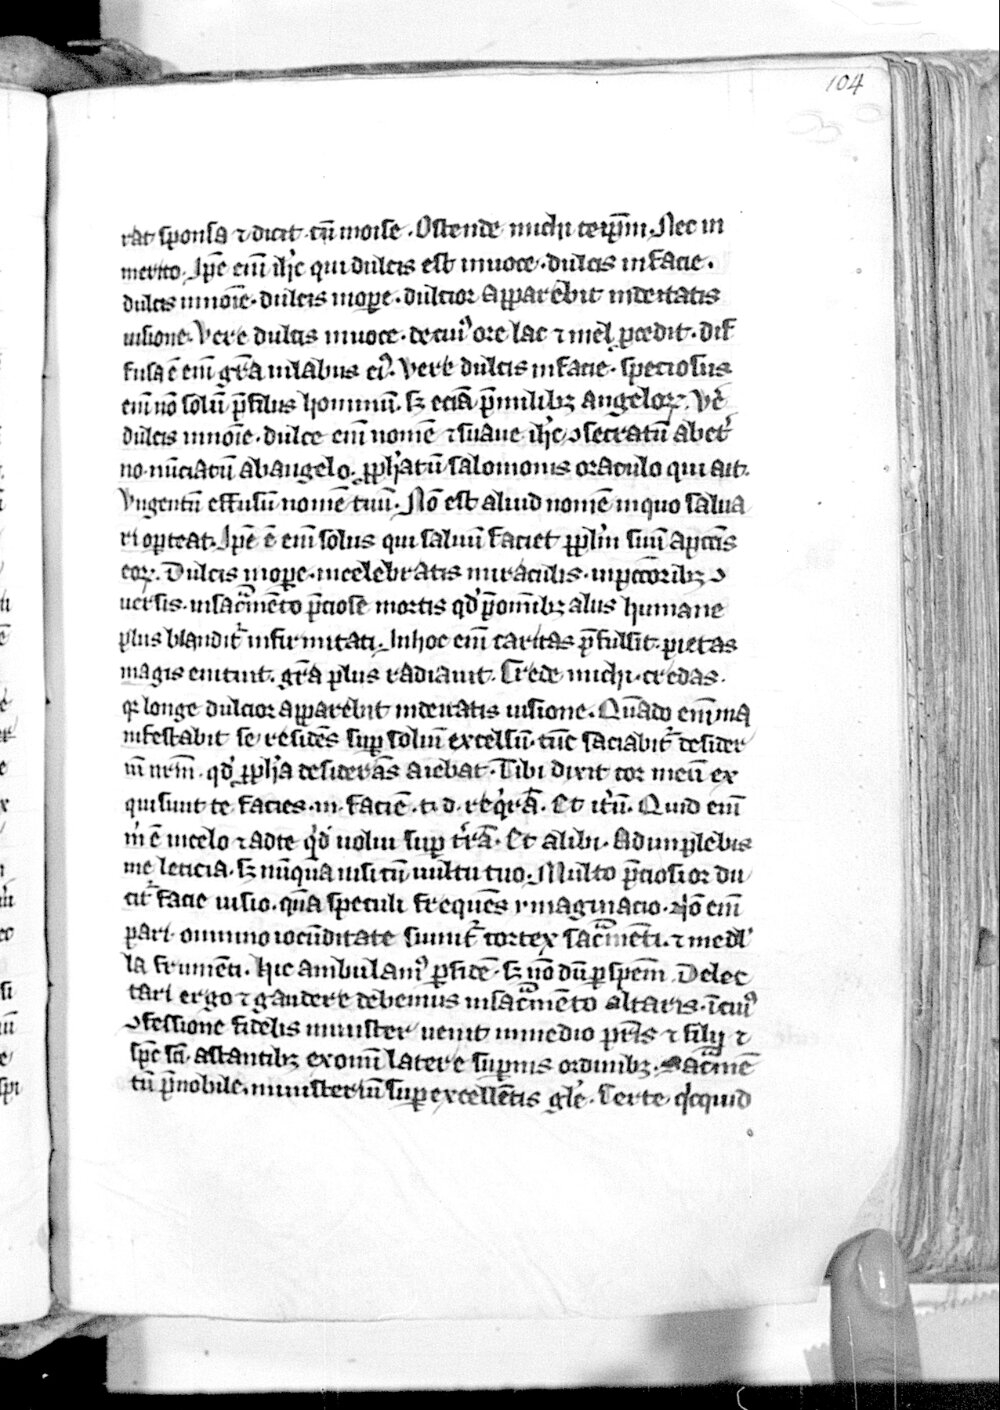 104
rat sponsa ⁊ dicit cu̅ moise . Ostende michi teip̅m . Nec in
merito . Ip̅e eni̅ ih̅c qui dulcis est in uoce . dulcis in facie .
dulcis in noi̅e . dulcis in op̅e . dulcior apparebit in deitatis
uisione . Vere dulcis in uoce . de cui᷒ ore lac ⁊ mel p̲cedit . dif
fusa e̅ eni̅ gr̅a in labiis ei᷒ . Vere dulcis in facie . speciosus
eni̅ no̅ solu̅ p̅ filiis hominu̅ . sꝫ ecia̅ p̅ milibꝫ angeloꝝ . Ve̅
dulcis in noi̅e . dulce eni̅ nome̅ ⁊ suaue ih̅c ꝯsecratu̅ ab et̅
no . nu̅ciatu̅ ab angelo . p̲ph̅atu̅ salomonis oraculo qui ait .
Vngentu̅ effusu̅ nome̅ tuu̅ . No̅ est aliud nome̅ in quo salua
ri oporteat . Ip̅e e̅ eni̅ solus qui saluu̅ faciet pp̅lm̅ suu̅ a pccis̅
eoꝝ . Dulcis in op̅e . in celebratis miraculis . in p̅ccoribꝫ ꝯ
uersis . in sac̅me̅to p̅ciose mortis qd̅ p̅ omnibꝫ aliis humane
plus blandit᷑ infirmitati . In hoc eni̅ caritas p̅fulsit . pietas
magis enituit . gr̅a plus radiauit . Crede michi . credas .
qꝛ longe dulcior apparebit in deitatis uisione . Qua̅do eni̅ ma
nifestabit se reside̅s sup̲ soliu̅ excelsu̅ . tu̅c saciabit᷑ desider
iu̅ nr̅m . qd̅ p̲ph̅a desidera̅s aiebat . Tibi dixit cor meu̅ ex
quisiuit te facies . m . facie̅ . t . d . req̅ra̅ . Et it̅u̅ . Quid eni̅
m̅ e̅ in celo ⁊ a dte q̅d uolui sup̲ t̅ra̅ . Et alibi . Adimplebis
me leticia . sꝫ nu̅qua̅ nisi cu̅ uultu tuo . Multo p̅ciosior du
cit᷑ facie uisio . qua̅ speculi freque̅s ymaginacio . No̅ eni̅
pari omnino iocu̅ditate sumit᷑ cortex sac̅me̅ti . ⁊ medl̅
la frume̅ti . Hic ambulam᷒ p̲ fide̅ . sꝫ no̅ du̅ p̲ spem̅ . Delec
tari ergo ⁊ gaudere debemus in sac̅me̅to altaris . i̅ cui᷒
ꝯfessione fidelis minister uenit in medio pr̅is ⁊ filii ⁊
sp̅c sc̅i . astantibꝫ ex omni latere sup̲nis ordinibꝫ . Sac̅me̅
tu̅ p̅nobile . ministeriu̅ sup̲ excelle̅tis gl̅e . Certe q̅cquid